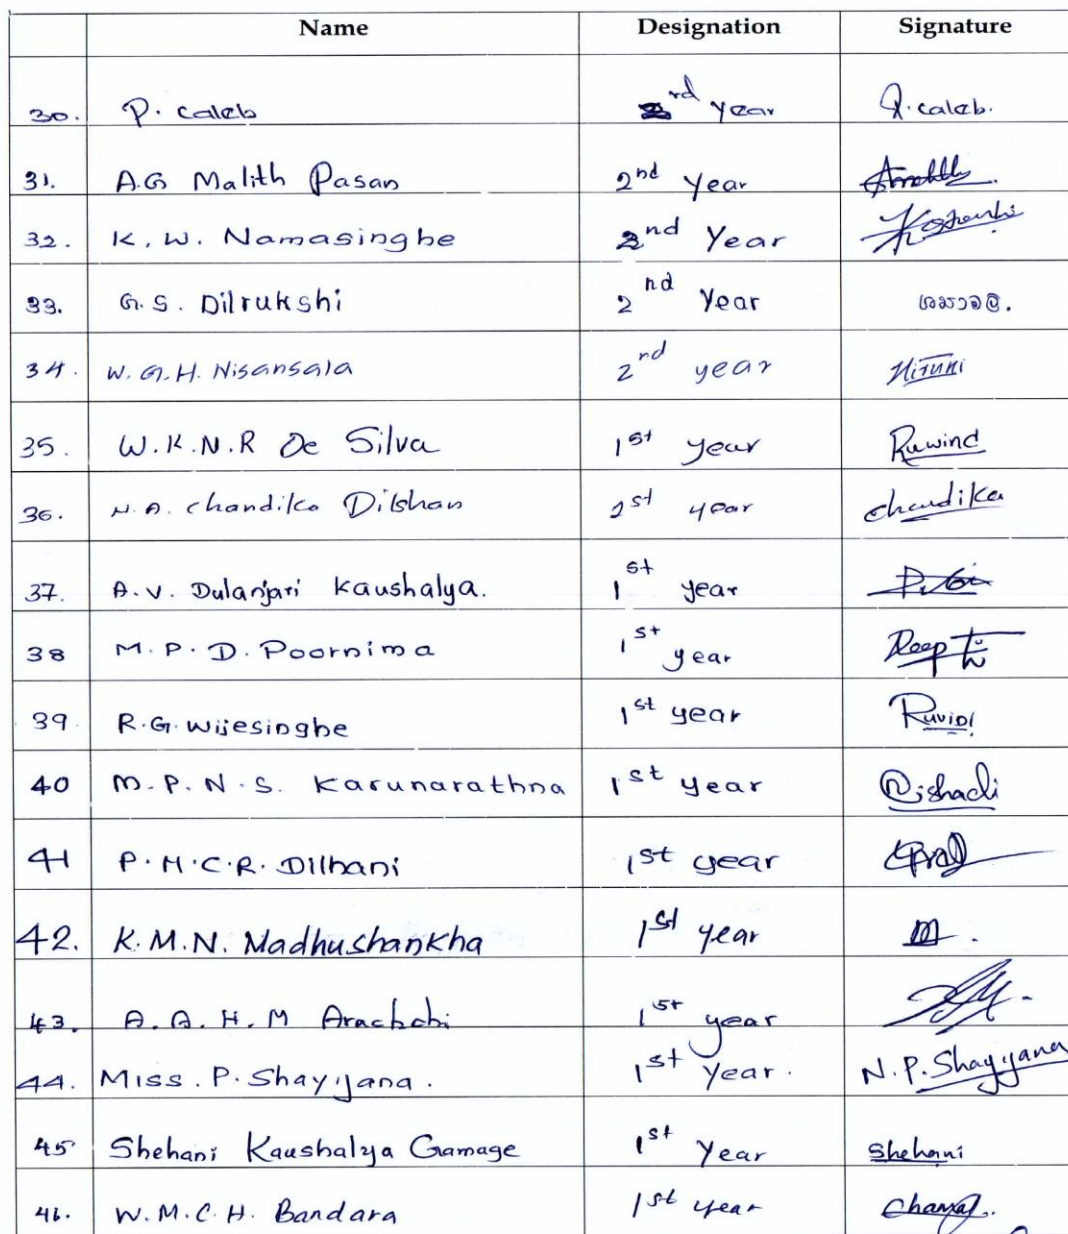 Name Designation Signature
30. P. Caleb rd year P. caleb.
31. A.G Malith Pasan 2nd Year
32. K. W. Namasinghe 2nd Year
33. G. S. Dilrukshi 2nd Year
34. W. G. H. Nisansala 2nd year Hiruni
35. W. K. N. R De Silva 1st year Ruwind
36. N. A. Chandika Dilshan 1st year Chandika
37. A. V. Dulanjari Kaushalya. 1st year
38 M. P. D. Poornima 1st year Deepti
39 R. G. Wijesinghe 1st year Ruvini
40 M. P. N. S. Karunarathna 1st year Nishadi
41 P. H. C. R. Dilhani 1st year
42. K. M. N. Madhushankha 1st year
43. A. A. H. M Arachchi 1st year
44. Miss. P. Shayijana. 1st Year. N. P. Shayijana
45 Shehani Kaushalya Gamage 1st Year Shehani
46. W. M. C. H. Bandara 1st year